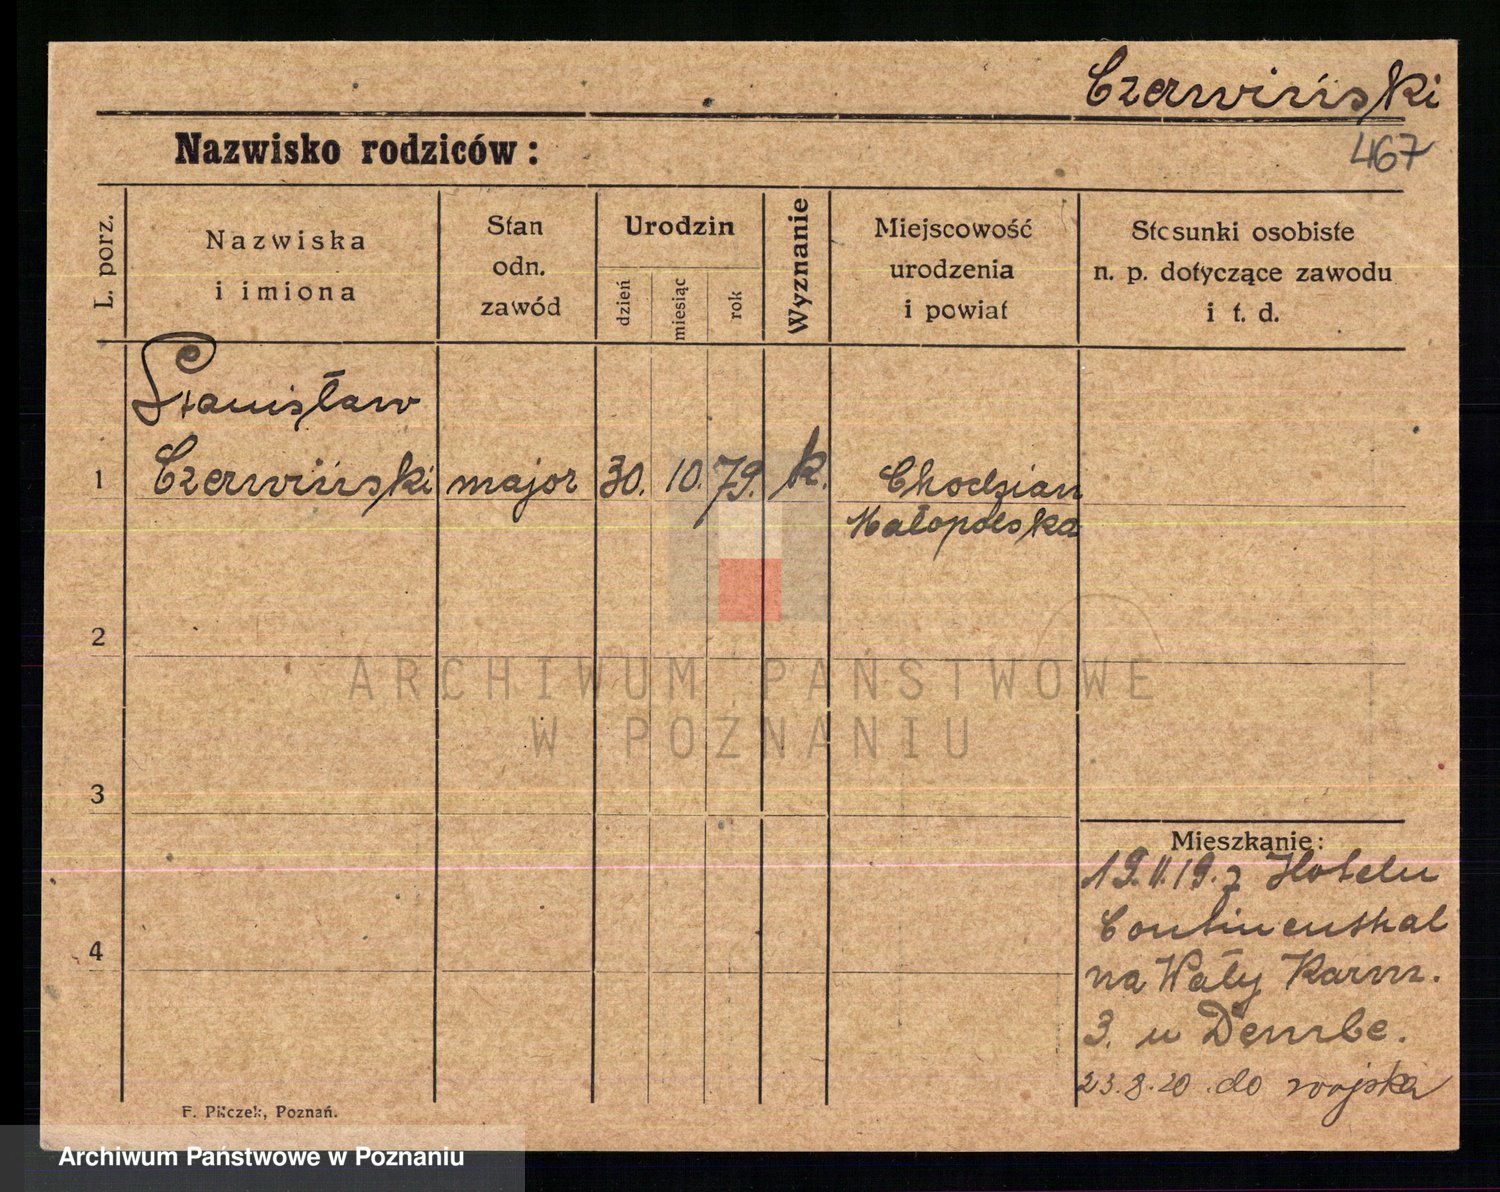 Czerwiński
Nazwisko rodziców:
467
L. porz.
Nazwiska
i imiona
Stan
odn.
zawód
Urodzin
dzień
miesiąc
rok
Wyznanie
Miejscowość
urodzenia
i powiat
Stosunki osobiste
n. p. dotyczące zawodu
i t. d.
Stanisław
1 Czerwiński major 30. 10. 79. k. Chodzian
Małopolska
2
ARCHIWUM PAŃSTWOWE
W POZNANIU
3
Mieszkanie:
19.II.19. z Hotelu
Continenthal
na Wały Karm.
4
3. u Dembe.
23.8.20 do wojska
F. Pilczek, Poznań.
Archiwum Państwowe w Poznaniu